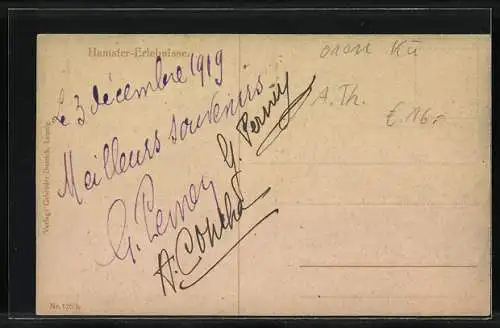 Hamster-Erlebnisse.
Le 3 décembre 1919
Meilleurs souvenirs
G. Perney
G. Perney
A. Couche
A. Th.
£ 16.-
Verlag: Gebrüder Dietrich, Leipzig.